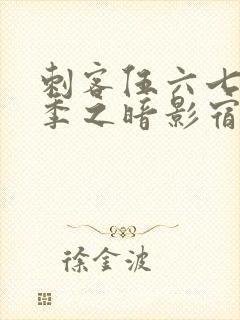 刺客伍六七
季之暗影宿
徐金波